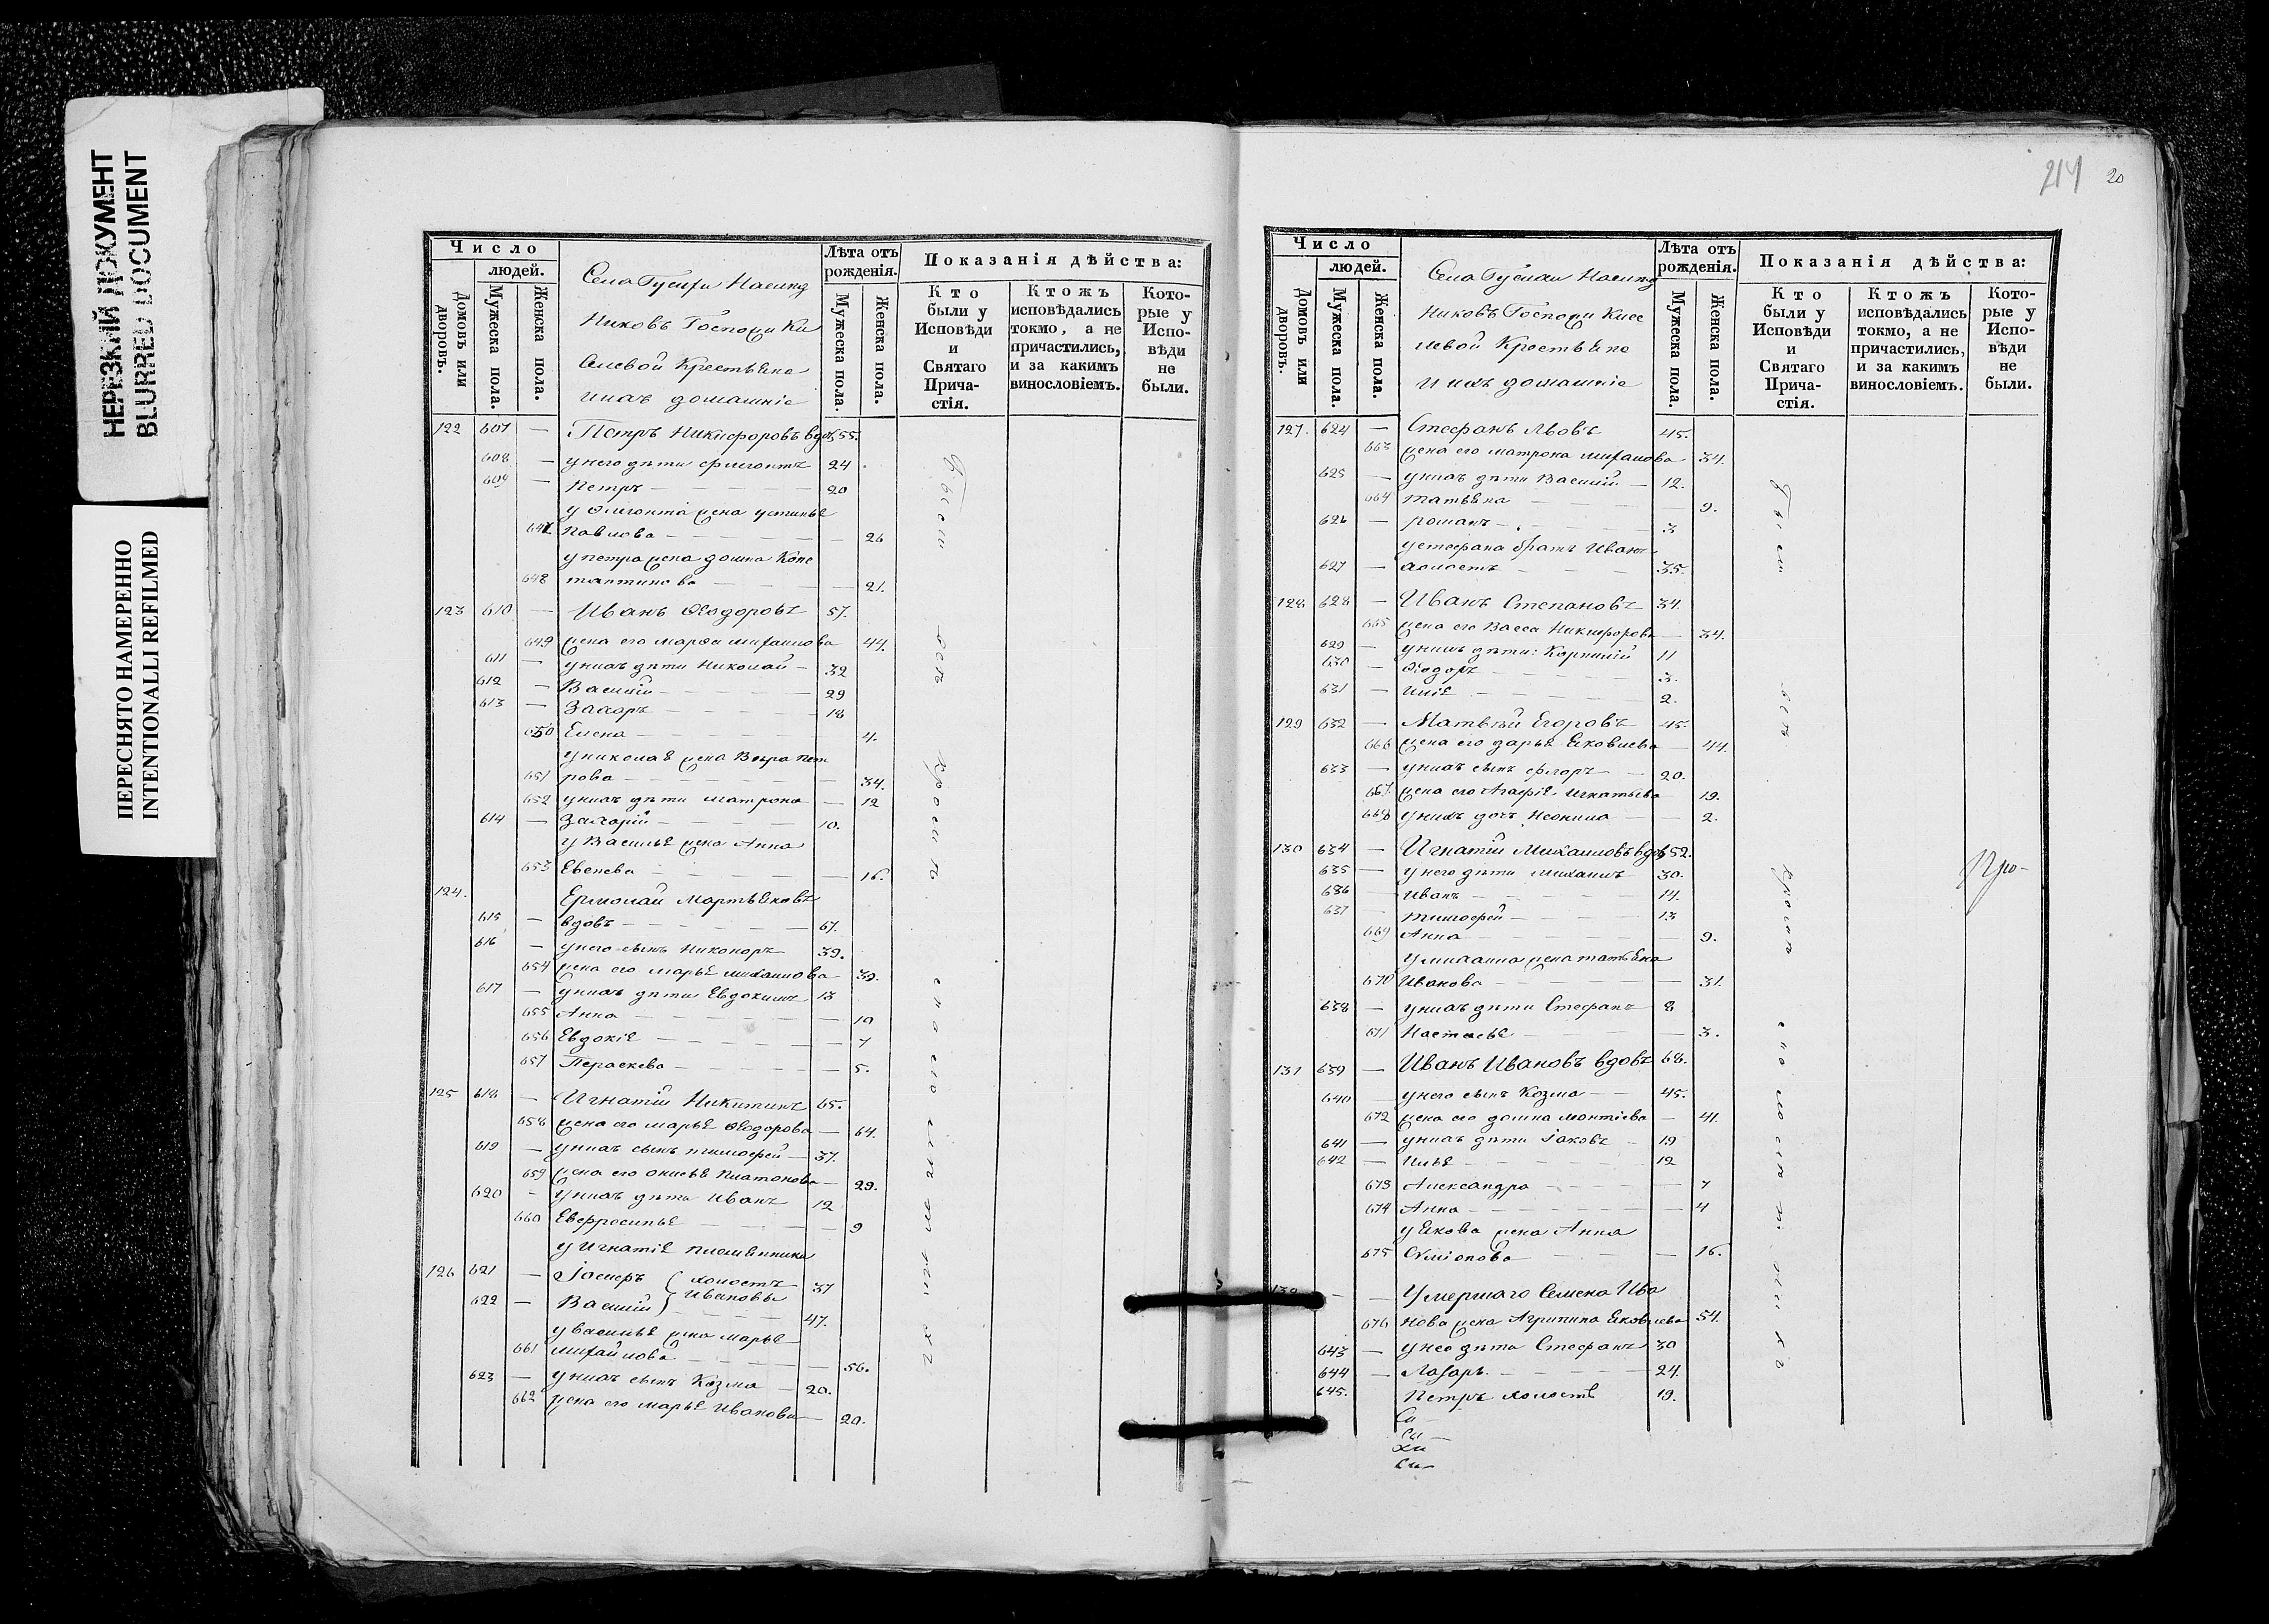 НЕРЕЗКИЙ ДОКУМЕНТ
BLURRED DOCUMENT
ПЕРЕСНЯТО НАМЕРЕННО
INTENTIONALLI REFILMED
Число
людей.
Домовъ или дворовъ.
Мужеска пола.
Женска пола.
Села
Наслед
никовъ Госпожи Ки
селевой Крестьяне
и ихъ домашніе
Лѣта отъ рожденія.
Мужеска пола.
Женска пола.
Показанія дѣйства:
Кто были у Исповѣди и Святаго Прича-стія.
Ктожъ исповѣдались токмо, а не причастились, и за какимъ винословіемъ.
Кото-рые у Испо-вѣди не были.
122 607 — Петръ Никифоровъ вдов. 55.
608 — у него дѣти Филиппъ 24
609 — Петръ — 20
647 Павлова — 26
у Петра жена Домна Конс
648 тантинова — 21.
123 610 — Иванъ Ѳеодоровъ 57.
649 жена его Марѳа Михайлова 44.
611 — у нихъ дѣти Николай — 32
612 — Василій — 29
613 — Захаръ — 18
650 Елена — 4.
у Николая жена Вѣра Пет
651 рова — 34.
652 у нихъ дѣти Матрона — 12
614 — Захарій — 10.
у Василья жена Анна
653 — 16.
124. Ермолай Мартьяновъ
615 — вдовъ — 67.
616 — у него сынъ Никоноръ 39.
654 жена его Марья Михайлова 39.
617 — у нихъ дѣти Евдокимъ 13
655 Анна — 10
656 Евдокія — 7
657 Параскева — 5.
125 618 — Игнатій Никитинъ 65.
658 жена его Марья Ѳеодорова — 64.
619 — у нихъ сынъ Тимофей — 37.
659 жена его Анисья Платонова — 29.
620 — у нихъ дѣти Иванъ 12
660 Евфросинья — 9
у Игнатія племянники
126 621 — Іосифъ холостъ 37
Ивановы
622 — Василій — 47.
у Василья жена Марья
661 Михайлова — 56.
623 — у нихъ сынъ Козма — 20.
662 жена его Марья Иванова — 20.
Были
всѣ
214
20
Число
людей.
Домовъ или дворовъ.
Мужеска пола.
Женска пола.
Села
Наслед
никовъ Госпожи Кисе
левой Крестьяне
и ихъ домашніе
Лѣта отъ рожденія.
Мужеска пола.
Женска пола.
Показанія дѣйства:
Кто были у Исповѣди и Святаго Прича-стія.
Ктожъ исповѣдались токмо, а не причастились, и за какимъ винословіемъ.
Кото-рые у Испо-вѣди не были.
127. 624 — Стефанъ Львовъ 45.
663 жена его Матрона Михайлова 34.
625 — у нихъ дѣти Василій — 12.
664 Татьяна — 9.
626 — Романъ — 3
у Стефана братъ Иванъ
627 — холостъ — 35.
128 628 — Иванъ Степановъ 34.
665 жена его Васса Никифорова — 34.
629 — у нихъ дѣти: Корнилій 11
630 — Ѳеодоръ — 3.
631 — Илія — 2.
129 632 — Матвѣй Егоровъ 45.
666 жена его Дарья Яковлева — 44.
633 — у нихъ сынъ Флоръ — 20.
667. жена его Агафія Игнатьева 19.
668 у нихъ дочь Неонила — 2.
130 634 — Игнатій Михайловъ вдов 52.
635 — у него дѣти Михаилъ 30.
636 — Иванъ — 14.
637 — Тимофей — 13
669 Анна — 9.
у Михаила жена Татьяна
670 Иванова — 31.
638 — у нихъ дѣти Стефанъ 8
671 Настасья — 3.
131 639 — Иванъ Ивановъ вдовъ 68.
640 — у него сынъ Козма — 45.
672 жена его Домна — 41.
641 — у нихъ дѣти Іаковъ — 19
642 — Илья — 12
673 Александра — 7
674 Анна — 4
у Якова жена Анна
675 — 16.
132 — — Умершаго Семена Ива
676 нова жена Агрипина Яковлева 54.
643 — у нее дѣти Стефанъ 30
644 — Лазарь — 24.
645. Петръ холостъ 19.
Были
всѣ